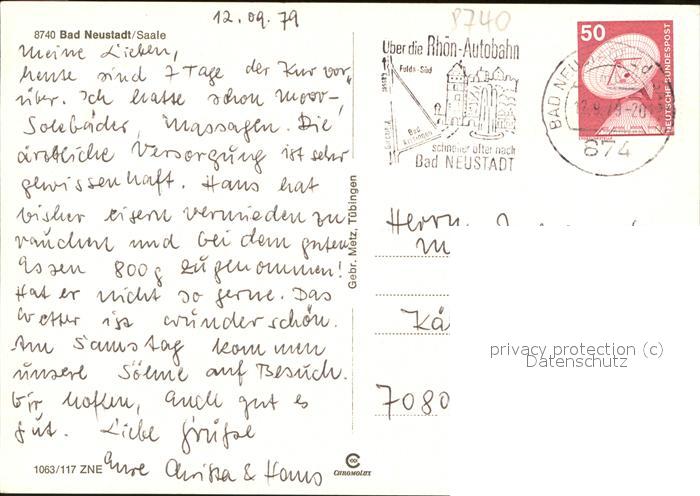 12.09.79
8740
8740 Bad Neustadt/Saale
Meine Lieben,
heute sind 7 Tage der Kur vor-
über. Ich hatte schon Moor-,
Solebäder, Massagen. Die
ärztliche Versorgung ist sehr
gewissenhaft. Hans hat
bisher eisern vermieden zu
rauchen und bei dem guten
Essen 800g zugenommen!
Hat er nicht so gerne. Das
Wetter ist wunderschön.
Am Samstag kommen
unsere Söhne auf Besuch.
Wir hoffen, Euch gut es
gut. Liebe Grüße
Eure Christa & Hans
1063/117 ZNE
CHROMOLUX
Gebr. Metz, Tübingen
Über die Rhön-Autobahn
Fulda-Süd
Bad
schneller öfter nach
Bad NEUSTADT
50
DEUTSCHE BUNDESPOST
BAD NEU
12.9.79-20
874
Herrn
Kä
7080
privacy protection (c)
Datenschutz